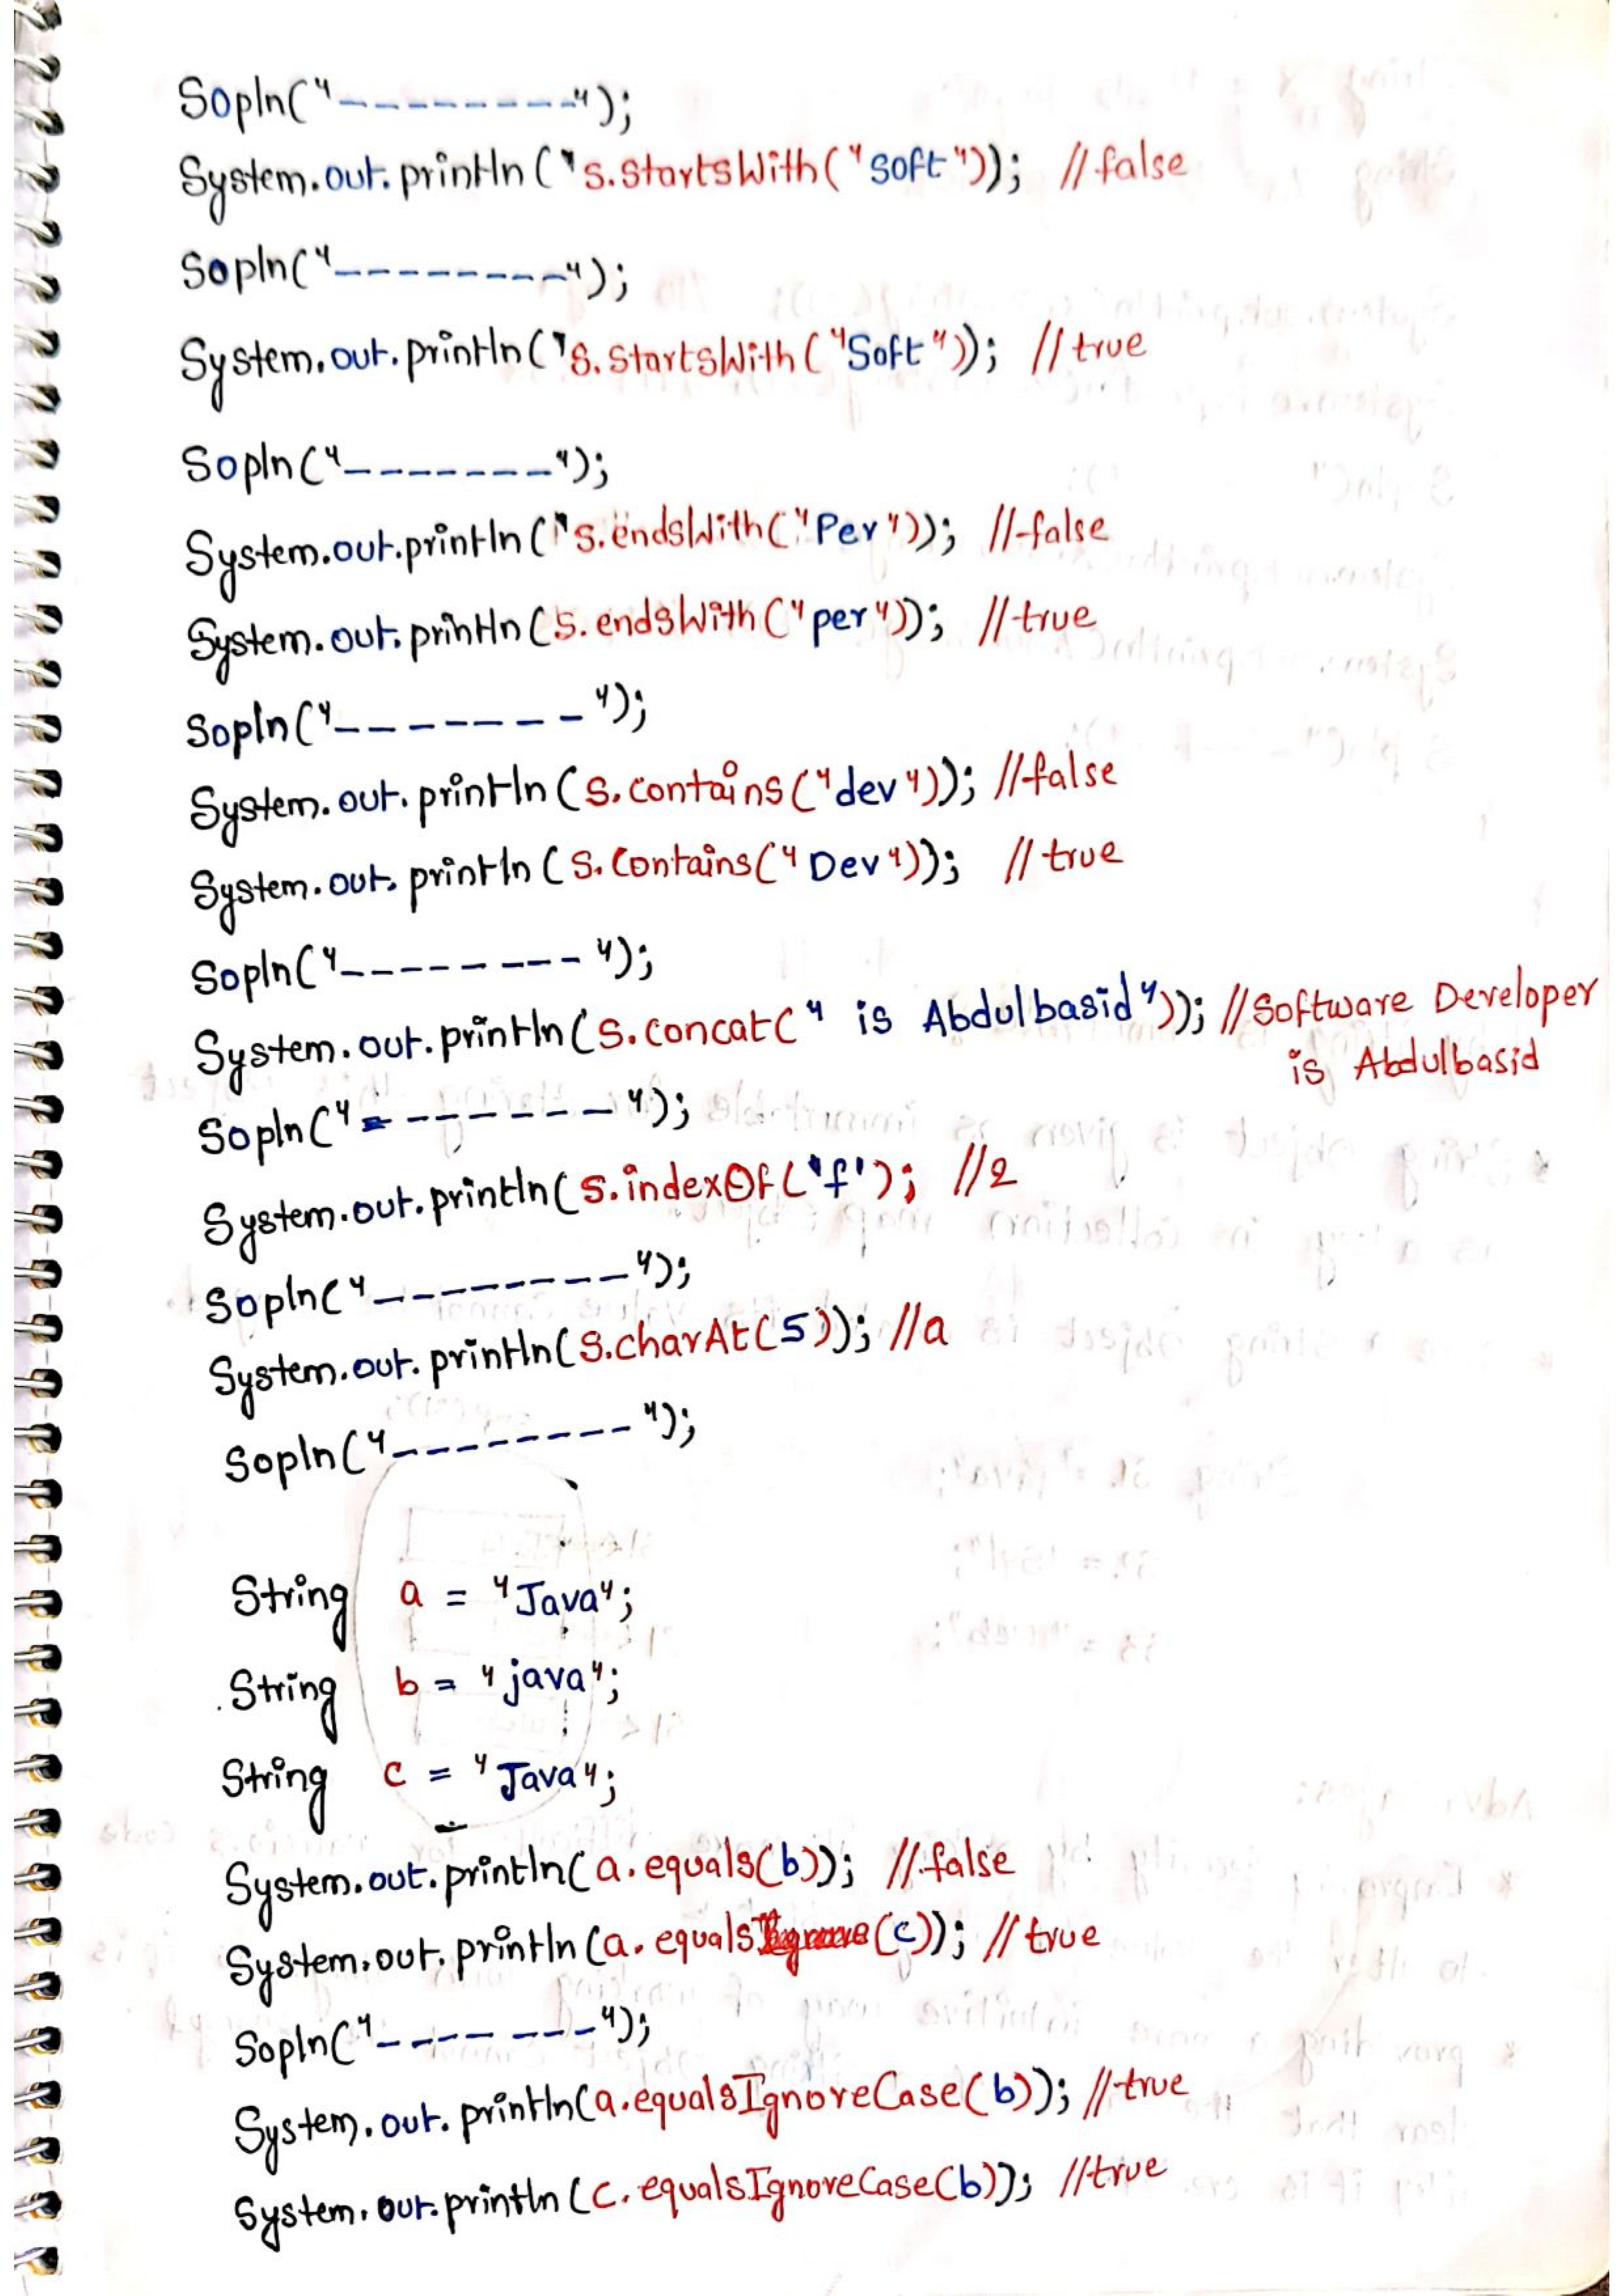 Sopln("---------");
System.out.println("s.startsWith("soft")); //false
Sopln("---------");
System.out.println("s.startsWith("Soft")); //true
Sopln("-------");
System.out.println("s.endsWith("Per")); //false
System.out.println(s.endsWith("per")); //true
Sopln("-------");
System.out.println(s.contains("dev")); //false
System.out.println(s.contains("Dev")); //true
Sopln("--------");
System.out.println(s.concat(" is Abdulbasid")); //Software Developer
is Abdulbasid
Sopln("-------");
System.out.println(s.indexOf('f'); //2
Sopln("--------");
System.out.println(s.charAt(5)); //a
Sopln("--------");
String a = "Java";
String b = "java";
String c = "Java";
System.out.println(a.equals(b)); //false
System.out.println(a.equals(c)); //true
Sopln("-------");
System.out.println(a.equalsIgnoreCase(b)); //true
System.out.println(c.equalsIgnoreCase(b)); //true